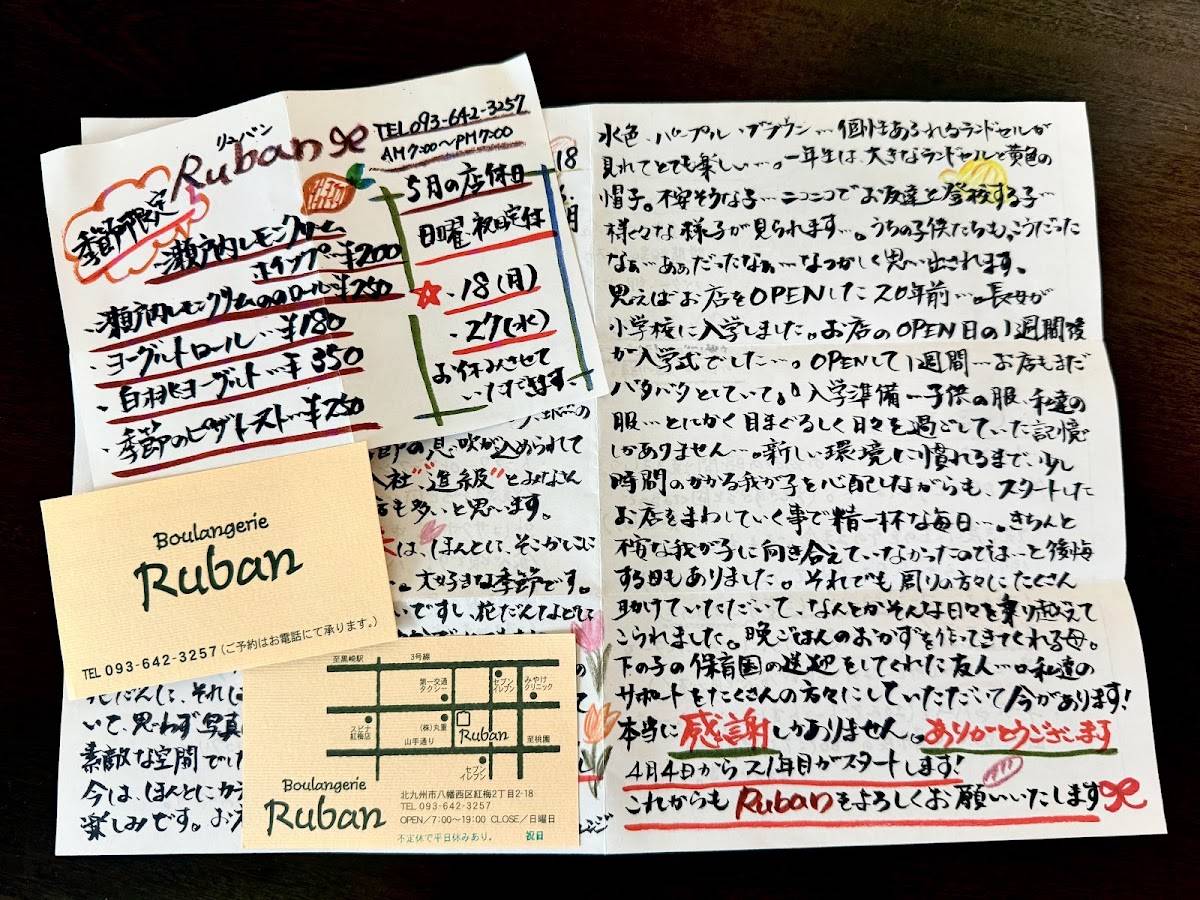 リュバン
Ruban
TEL093-642-3257
AM7:00〜PM7:00
季節限定
・瀬戸内レモンクリーム
ホイップ…¥200
・瀬戸内レモンクリームののロール…¥250
・ヨーグルトロール…¥180
・白桃ヨーグルト…¥350
・季節のピザトースト…¥250
5月の店休日
日曜、祝日定休
・18(月)
・27(水)
お休みさせて
いただきます。
18
の息吹が込められて
入社"、"進級"とみなさん
も多いと思います。
は、ほんとに、そこかしこに
。大好きな季節です。
いですし、花だんなどし
花だんに、それし
いて、思わず写真
素敵な空間でし
今は、ほんとにカラ
楽しみです。お
水色、パープル、ブラウン…個性あふれるランドセルが
見れてとても楽しい…。一年生は、大きなランドセルと黄色の
帽子。不安そうな子…ニコニコでお友達と登校する子…
様々な様子が見られます…。うちの子供たちも、こうだった
なぁ…あぁだったなぁ…なつかしく思い出されます。
思えばお店をOPENした20年前…。長女が
小学校に入学しました。お店のOPEN日の1週間後
が入学式でした…。OPENして1週間…お店もまだ
バタバタとしていて。入学準備…子供の服、私達の
服…とにかく目まぐるしく日々を過ごしていた記憶
しかありません…。新しい環境に慣れるまで、少し
時間のかかる我が子を心配しながらも、スタートした
お店をまわしていく事で精一杯な毎日…。きちんと
不安な我が子に向き合えていなかったのでは…と後悔
する日もありました。それでも周りの方々にたくさん
助けていただいて、なんとかそんな日々を乗り越えて
こられました。晩ごはんのおかずを作ってきてくれる母。
下の子の保育園の送迎をしてくれた友人…。私達の
サポートをたくさんの方々にしていただいて今があります!
本当に感謝しかありません。ありがとうございます
4月4日から21年目がスタートします!
これからもRubanをよろしくお願いいたします
Boulangerie
Ruban
TEL 093-642-3257(ご予約はお電話にて承ります。)
至黒崎駅
3号線
第一交通
タクシー
セブン
イレブン
みやけ
クリニック
スピナ
紅梅店
(株)丸重
山手通り
Ruban
至桃園
セブン
イレブン
Boulangerie
Ruban
北九州市八幡西区紅梅2丁目2-18
TEL 093-642-3257
OPEN/7:00〜19:00 CLOSE/日曜日
不定休で平日休みあり。 祝日